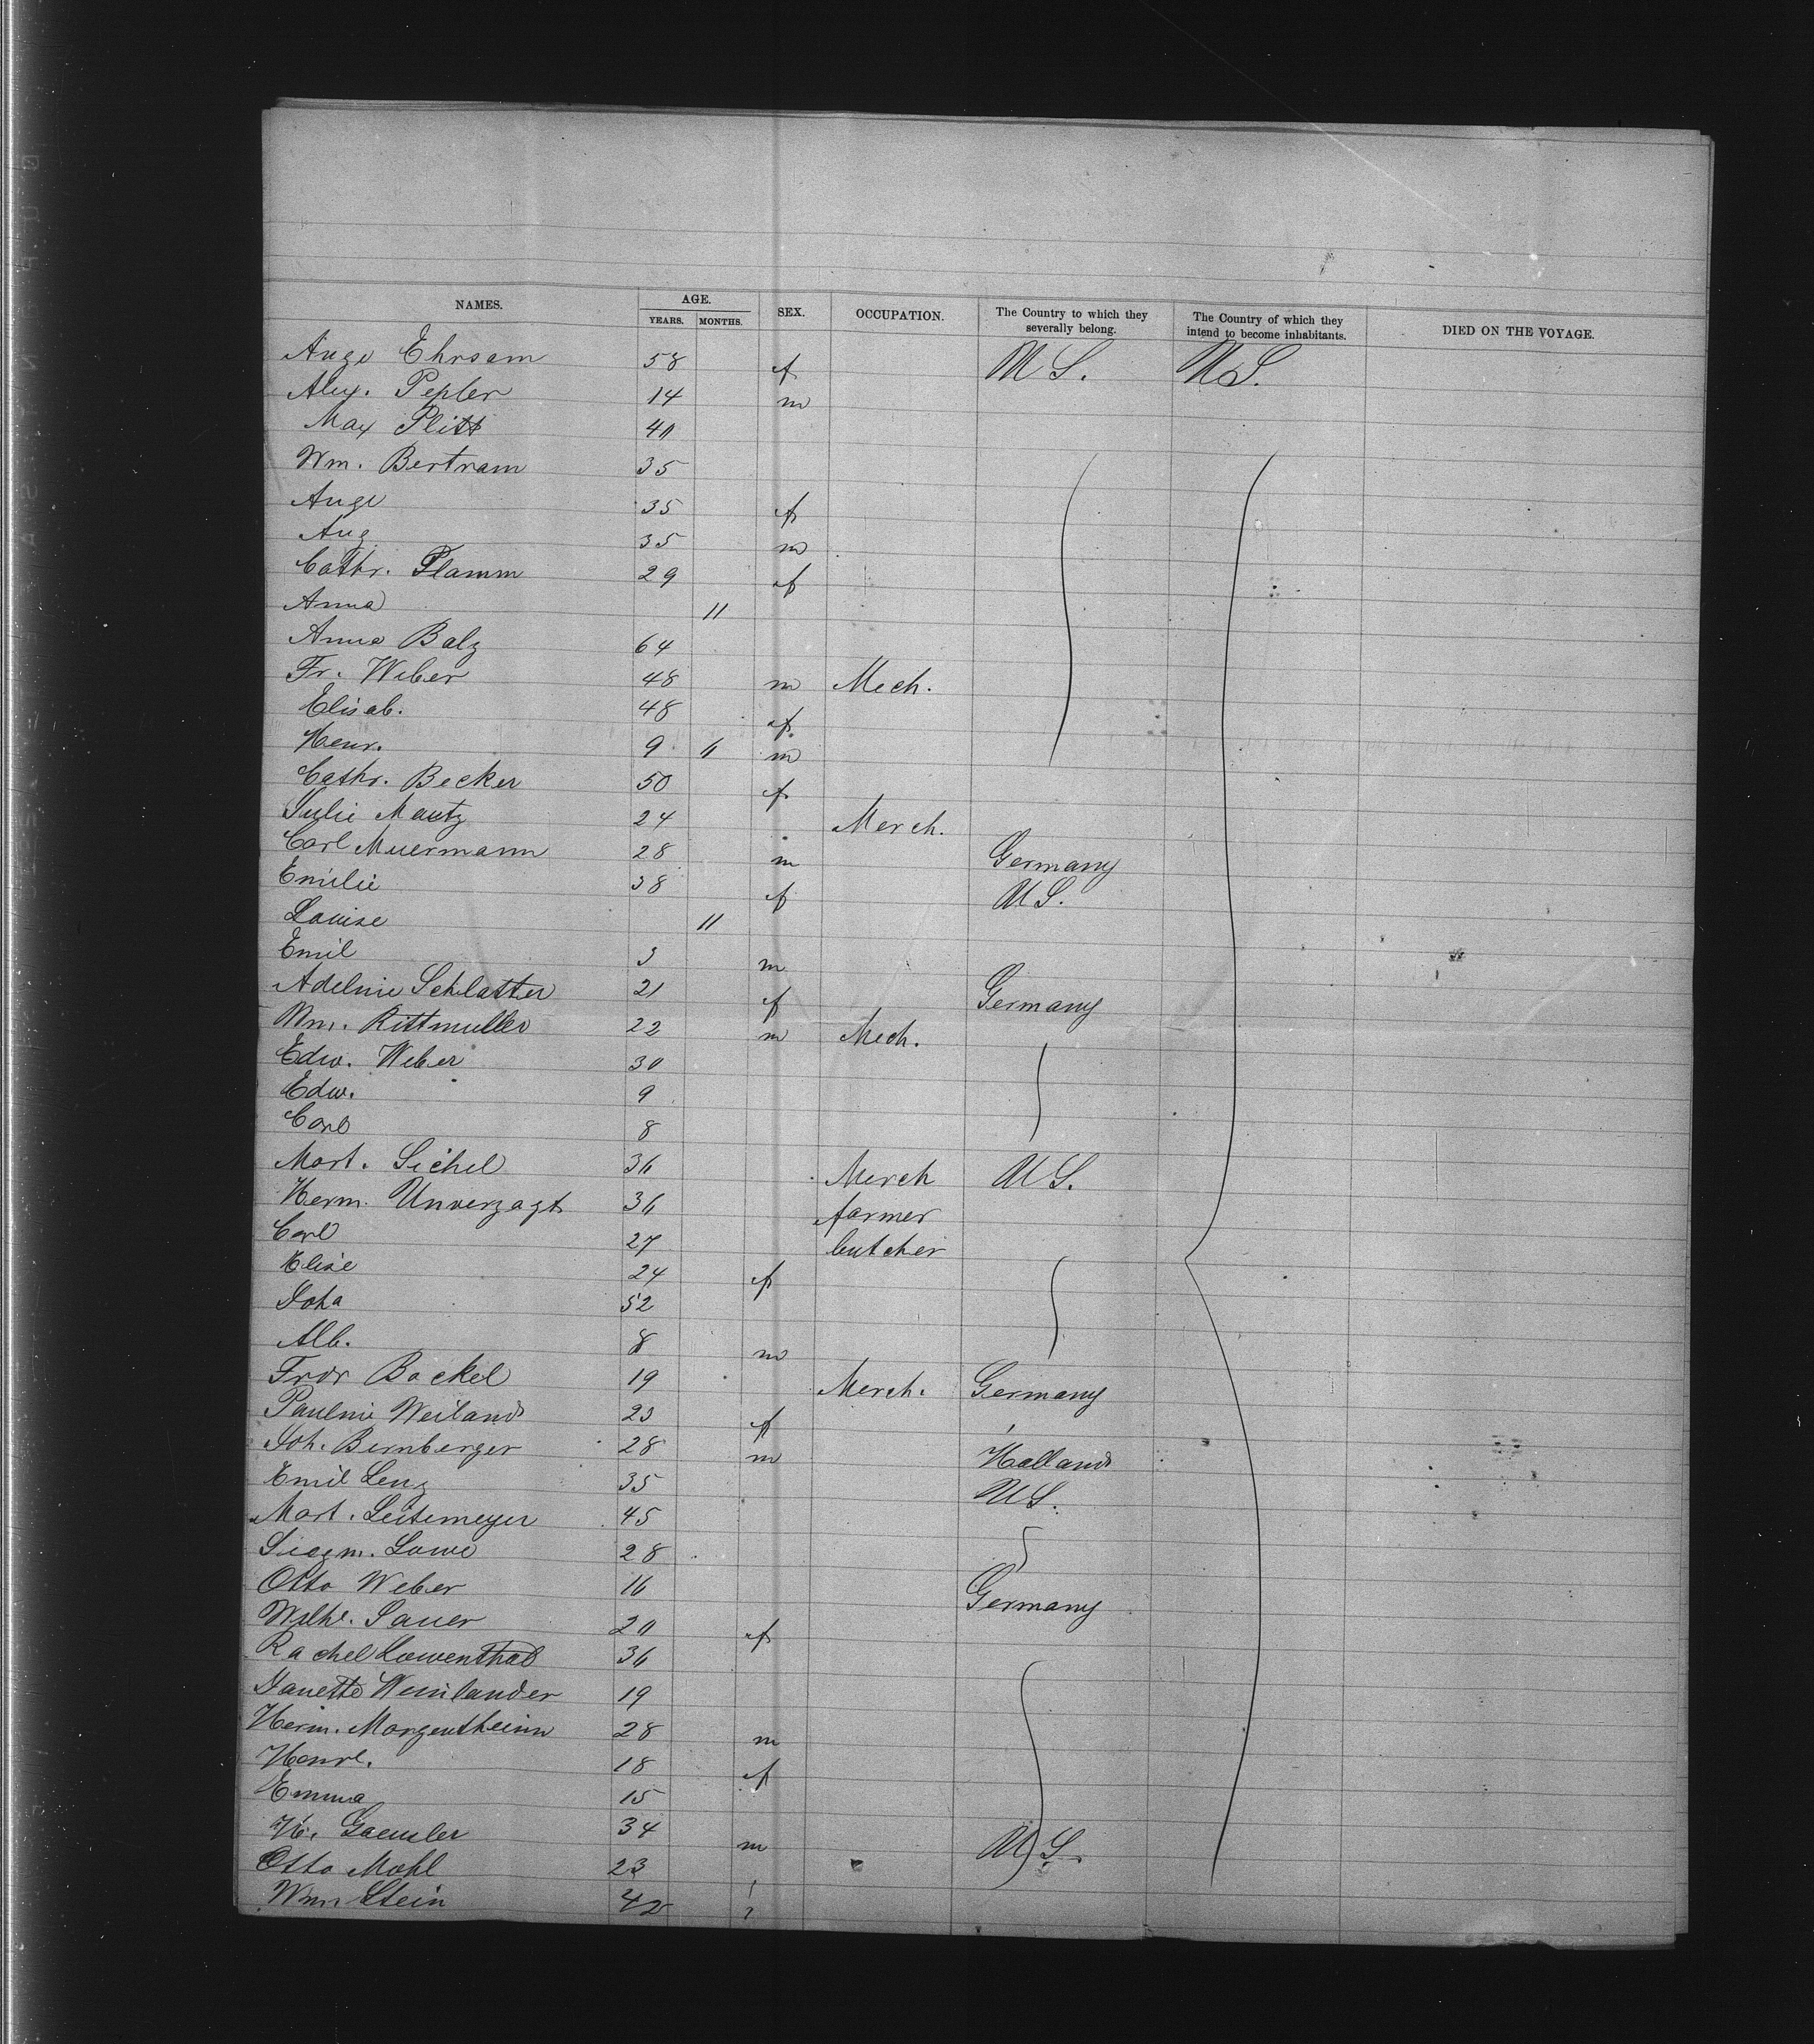 NAMES. AGE. YEARS. MONTHS. SEX. OCCUPATION. The Country to which they severally belong. The Country of which they intend to become inhabitants. DIED ON THE VOYAGE.
Auge Ehrsam 58 f U S. U S.
Alex. Pepler 14 m
Max Plitt 40
Wm. Bertram 35
Auge 35 f
Aug 35 m
Cathr. Plamm 29 f
Anna 11
Anna Balz 64
Fr. Weber 48 m Mech.
Elisab. 48 f
Henr. 9 6 m
Cathr. Becker 50 f
Julie Mautz 24 Merch.
Carl Muermann 28 m Germany
Emilie 38 f U S.
Louise 11
Emil 3 m
Adelnie Schlatter 21 f Germany
Wm. Rittmuller 22 m Mech.
Edw. Weber 30
Edw. 9
Carl 8
Mort. Sichel 36 Merch U S.
Herm. Unverzagt 36 farmer
Carl 27 butcher
Elise 24 f
Joha 52
Alb. 8 m
Frdr Bockel 19 Merch. Germany
Paulnie Weiland 23 f
Joh. Bernberger 28 m Holland
Emil Lenz 35 U S.
Mart. Leitemeyer 45
Siegm. Lowe 28
Otto Weber 16 Germany
Wilhe. Sauer 20 f
Rachel Lowenthal 36
Janette Weinlander 19
Herm. Morgentheim 28 m
Henrl. 18 f
Emma 15
H. Gaensler 34 m U S.
Otto Mohl 23
Wm Stein 42